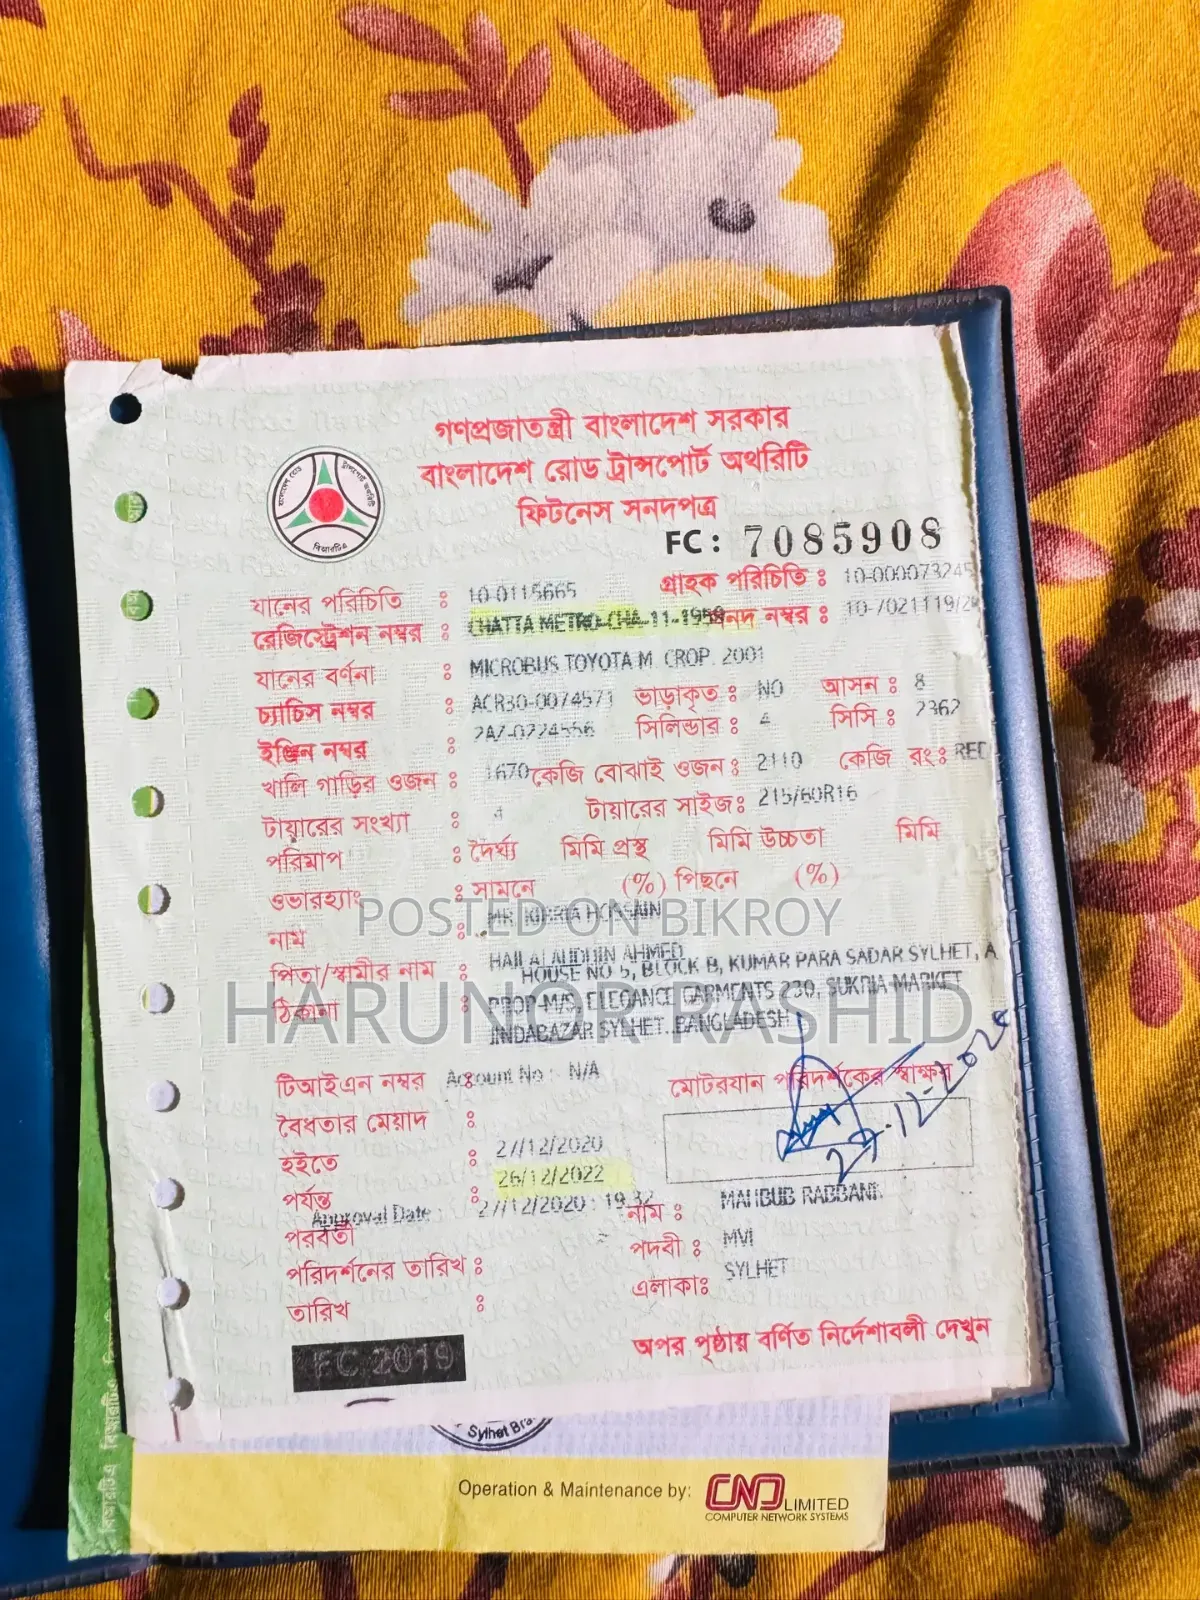 গণপ্রজাতন্ত্রী বাংলাদেশ সরকার
বাংলাদেশ রোড ট্রান্সপোর্ট অথরিটি
ফিটনেস সনদপত্র
FC : 7085908
বিআরটিএ
যানের পরিচিতি : 10-0115665 গ্রাহক পরিচিতি : 10-000073245
রেজিস্ট্রেশন নম্বর : CHATTA METRO-CHA-11-1959 সনদ নম্বর : 10-7021119/20
যানের বর্ণনা : MICROBUS TOYOTA M. CROP. 2001
চ্যাচিস নম্বর : ACR30-0074571 ভাড়াকৃত : NO আসন : 8
ইঞ্জিন নম্বর : 2AZ-0224556 সিলিন্ডার : 4 সিসি : 2362
খালি গাড়ির ওজন : 1670 কেজি বোঝাই ওজন : 2110 কেজি রং : RED
টায়ারের সংখ্যা : 4 টায়ারের সাইজ : 215/60R16
পরিমাপ : দৈর্ঘ্য মিমি প্রস্থ মিমি উচ্চতা মিমি
ওভারহ্যাং : সামনে (%) পিছনে (%)
POSTED ON BIKROY
নাম : MR. KIBRIA HOSSAIN
পিতা/স্বামীর নাম : HAJI ALAUDDIN AHMED
ঠিকানা : HOUSE NO 5, BLOCK B, KUMAR PARA SADAR SYLHET, A
PROP-M/S. ELEGANCE GARMENTS 230, SUKRIA MARKET
JINDABAZAR SYLHET. BANGLADESH
HARUNOR RASHID
টিআইএন নম্বর : Account No : N/A মোটরযান পরিদর্শকের স্বাক্ষর
বৈধতার মেয়াদ :
হইতে : 27/12/2020
27.12.2020
পর্যন্ত : 26/12/2022
Approval Date : 27/12/2020 : 19.32 নাম : MAHBUB RABBANI
পরবর্তী
পরিদর্শনের তারিখ : পদবী : MVI
তারিখ : এলাকাঃ SYLHET
FC 2019
অপর পৃষ্ঠায় বর্ণিত নির্দেশাবলী দেখুন
Sylhet Bra
Operation & Maintenance by: CNS LIMITED
COMPUTER NETWORK SYSTEMS